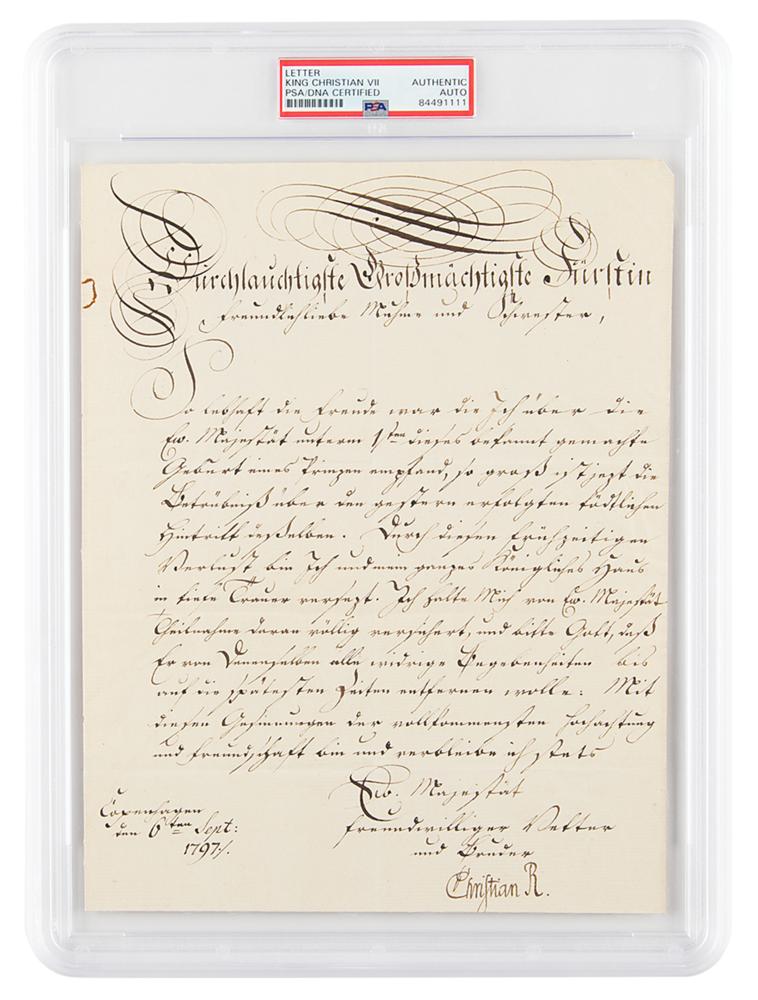 LETTER
KING CHRISTIAN VII
PSA/DNA CERTIFIED
AUTHENTIC
AUTO
84491111
PSA
Durchlauchtigste Großmächtigste Fürstin
freundlichliebe Muhme und Schwester,
So lebhaft die Freude war die Ich über die
Ew. Majestät unterm 1sten dieses bekannt gemachte
Geburt eines Prinzen empfand, so groß ist jezt die
Betrübniß über den gestern erfolgten tödtlichen
Hintritt deßelben. Durch diesen frühzeitigen
Verlust bin Ich und mein ganzes Königliches Haus
in tiefe Trauer versezt. Ich halte Mich von Ew. Majestät
Theilnahme daran völlig versichert, und bitte Gott, daß
Er von Denenselben alle widrige Begebenheiten bis
auf die spätesten Zeiten entfernen wolle: Mit
diesen Gesinnungen der vollkommensten Hochachtung
und Freundschaft bin und verbleibe ich stets
Ew. Majestät
freundwilliger Vetter
und Bruder
Christian R.
Copenhagen
den 6ten Sept:
1797/.